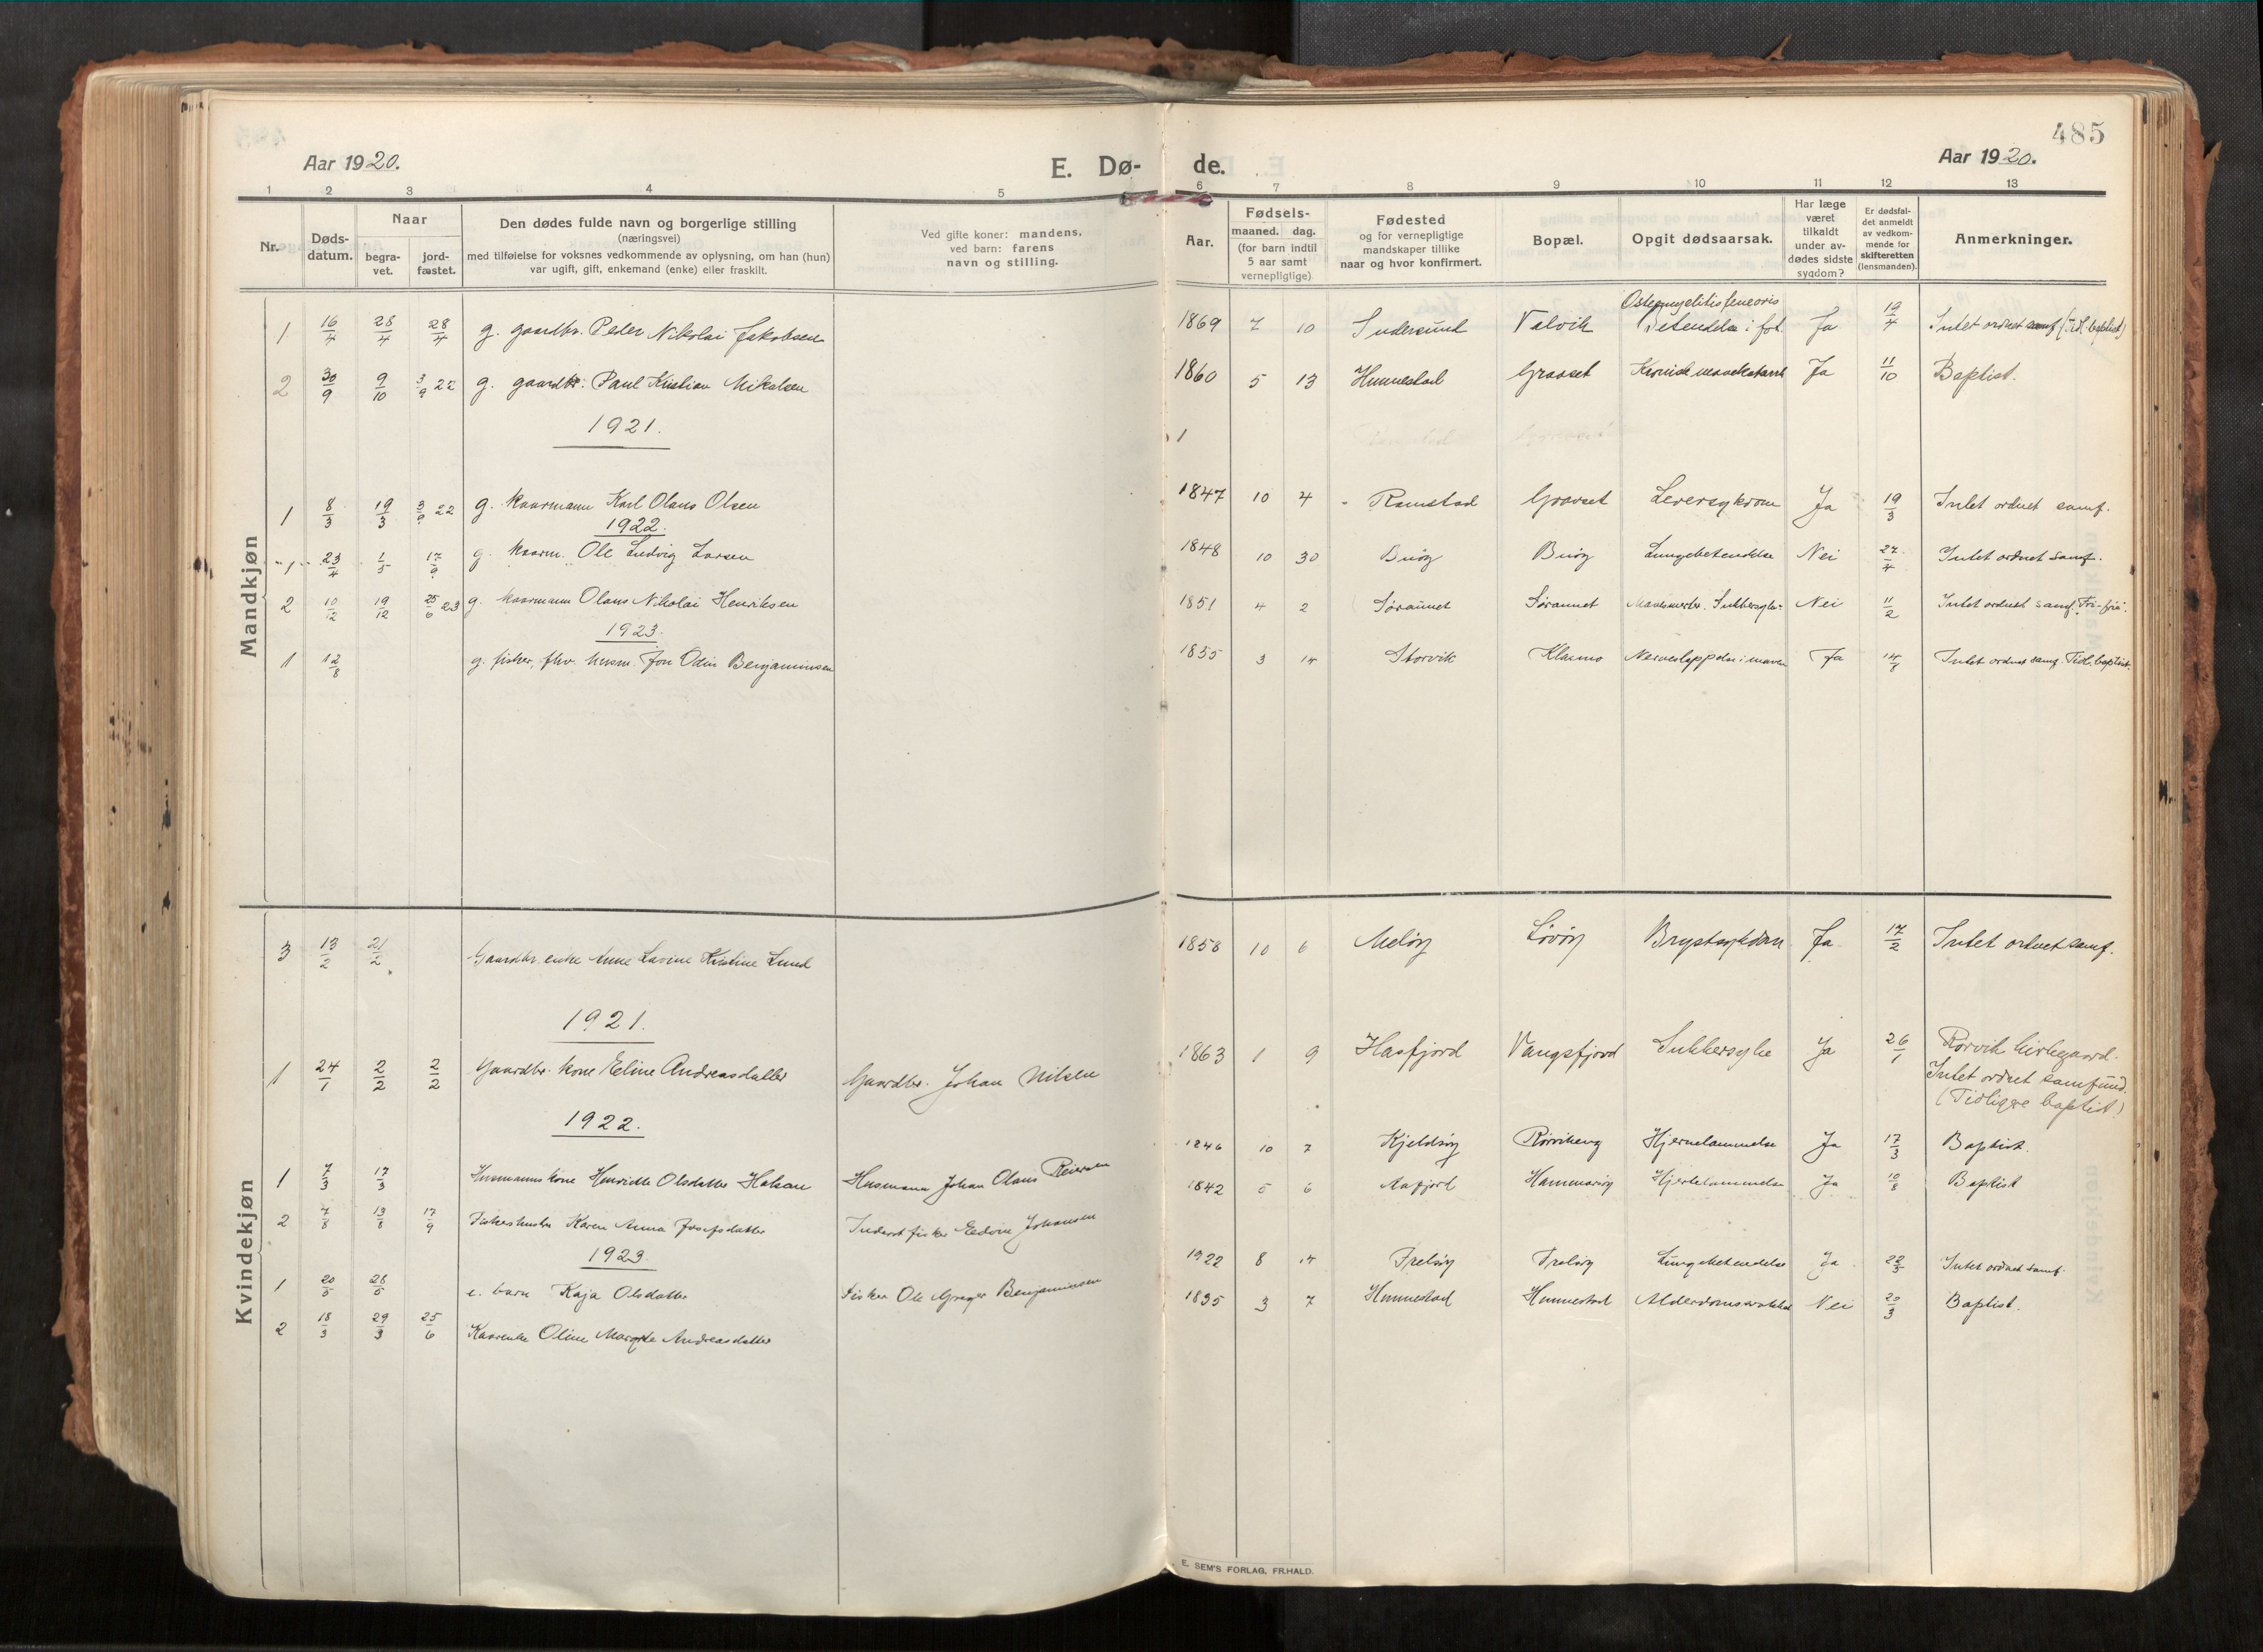 485
Aar 1920.
E. Dø-
de.
Aar 1920.
1 2 3 4 5 6 7 8 9 10 11 12 13
Nr.
Døds-
datum.
Naar
begra-
vet.
jord-
fæstet.
Den dødes fulde navn og borgerlige stilling
(næringsvei)
med tilføielse for voksnes vedkommende av oplysning, om han (hun)
var ugift, gift, enkemand (enke) eller fraskilt.
Ved gifte koner: mandens,
ved barn: farens
navn og stilling.
Aar.
Fødsels-
maaned. dag.
(for barn indtil
5 aar samt
vernepligtige)
Fødested
og for vernepligtige
mandskaper tillike
naar og hvor konfirmert.
Bopæl.
Opgit dødsaarsak.
Har læge
været
tilkaldt
under av-
dødes sidste
sygdom?
Er dødsfal-
det anmeldt
av vedkom-
mende for
skifteretten
(lensmanden).
Anmerkninger.
Mandkjøn
1 16/4 28/4 28/4 g. gaardbr. Peder Nikolai Jakobsen 1869 7 10 Indersund Valvik Osteomyelitis femoris
Betendelse i fot. Ja 19/4 Intet ordnet samf (Tidl. baptist)
2 30/9 9/10 3/9 22 g. gaardbr: Paul Kristian Mikalsen 1860 5 13 Hunnestad Gravset Kronisk mavekatarrh Ja 11/10 Baptist.
1921.
1
1 8/3 19/3 3/9 22 g. kaarmann Karl Olaus Olsen 1847 10 4 Ramstad Gravset Leversykdom Ja 19/3 Intet ordnet samf.
1922.
1 23/4 1/5 17/9 g. kaarm. Ole Ludvig Larsen 1848 10 30 Buøy Buøy Lungebetendelse Nei 27/4 Intet ordnet samf.
2 10/12 19/12 25/6 23 g. kaarmann Olaus Nikolai Henriksen 1851 4 2 Søraunet Søraunet Sukkersyke Nei 11/2 Intet ordnet samf.
1923.
1 12/8 g. fisker, fhv. husm. Jon Odin Benjaminsen 1855 3 14 Storvik Klasmo Nerveslappelse i maven Ja 14/8 Intet ordnet samf. Tidl. baptist.
Kvindekjøn
3 13/2 21/2 Gaardbr. enke Anne Lavine Kristine Lund 1858 10 6 Meløy Løvøy Brystsykdom Ja 17/2 Intet ordnet samf.
1921.
1 24/1 2/2 2/2 Gaardbr. kone Eline Andreasdatter Gaardbr. Johan Nilsen 1863 1 9 Hasfjord Vangsfjord Sukkersyke Ja 26/1 Rørvik kirkegaard.
Intet ordnet samfund.
(Tidligere baptist)
1922.
1 7/3 17/3 Husmanns kone Henriette Olsdatter Halsan Husmann Johan Olaus Reiersen 1846 10 7 Kjeldsøy Rørvikeng Hjernelammelse Ja 17/3 Baptist.
2 7/8 13/8 17/9 Fiskers hustru Karen Anna Josefsdatter Inderst fisker Edvin Johansen 1842 5 6 Aafjord Hammarøy Hjertelammelse Ja 10/8 Baptist
1923.
1 20/5 26/5 e. barn Kaja Olsdatter Fisker Ole Greger Benjaminsen 1922 8 14 Frelsøy Frelsøy Lungebetendelse Ja 22/5 Intet ordnet samf.
2 18/3 29/3 25/6 Kaarenke Oline Margrete Andreasdatter 1835 3 7 Hunnestad Hunnestad Alderdomssvakhet Nei 20/3 Baptist.
E. SEM'S FORLAG, FR.HALD.